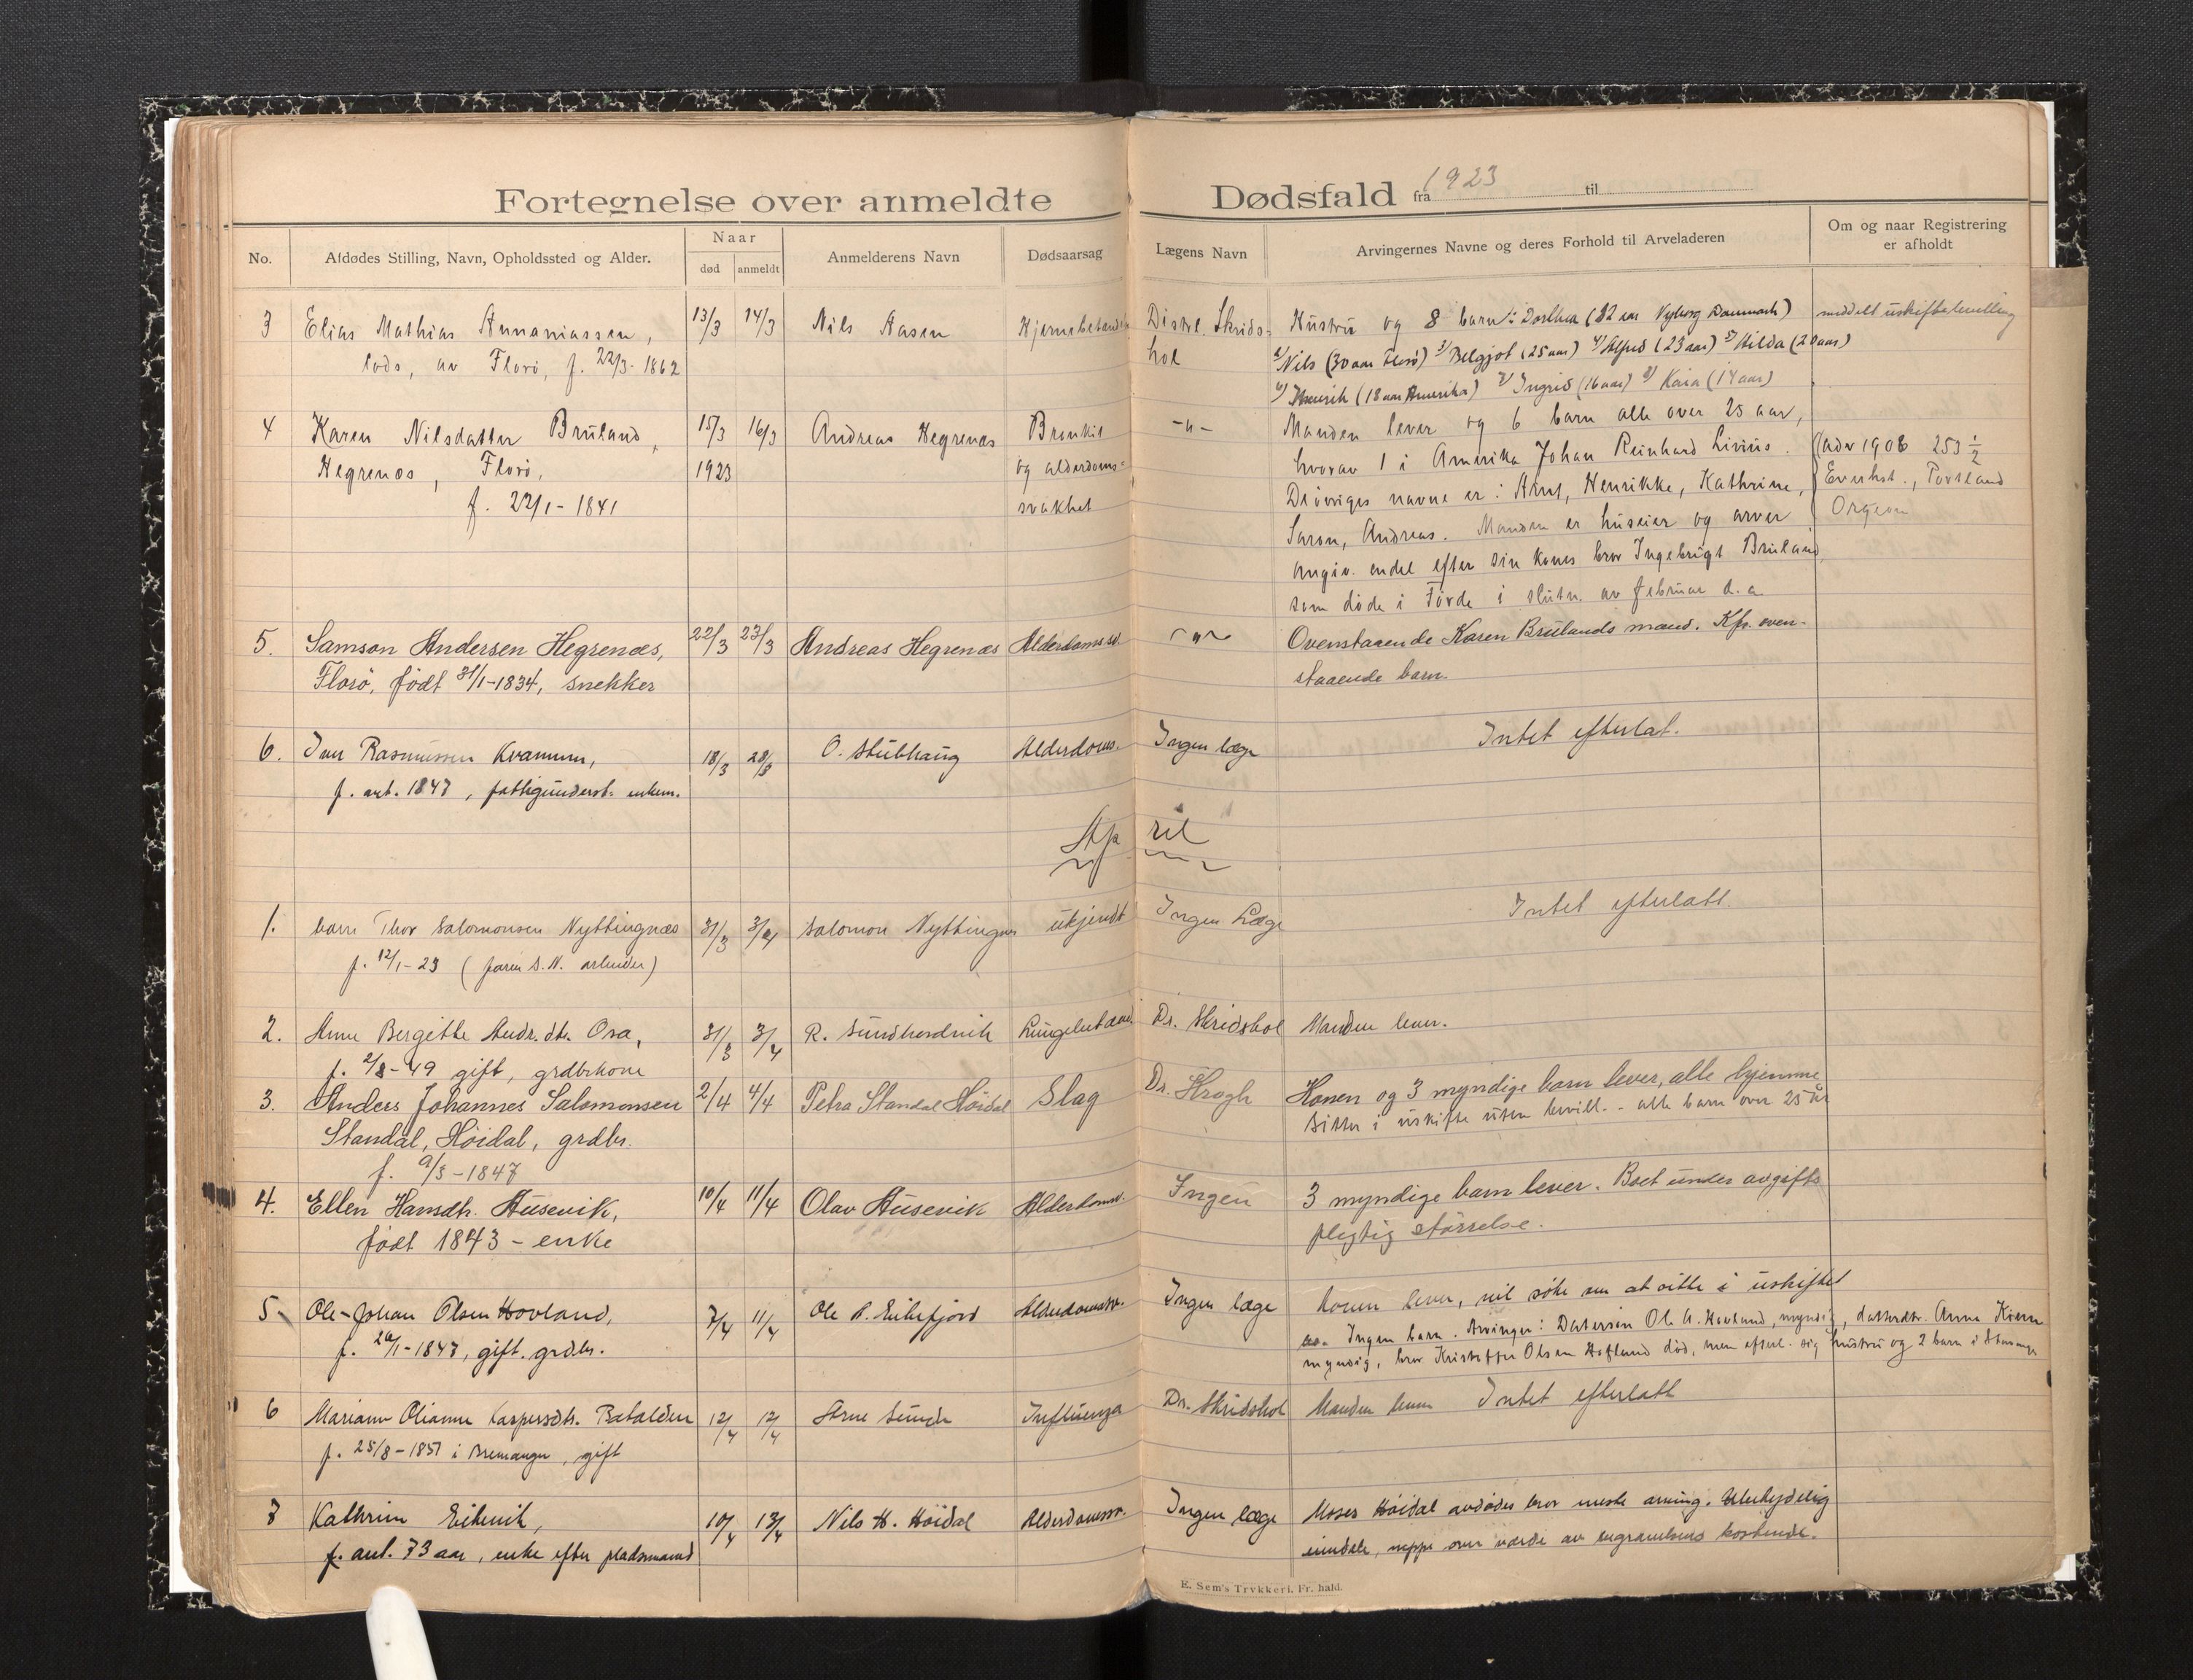 Fortegnelse over anmeldte Dødsfald fra 1923 til
No.
Afdødes Stilling, Navn, Opholdssted og Alder.
Naar
død
anmeldt
Anmelderens Navn
Dødsaarsag
Lægens Navn
Arvingernes Navne og deres Forhold til Arveladeren
Om og naar Registrering
er afholdt
3 Elias Mathias Annaniassen, 13/3 14/3 Nils Aasen Distr. Skrids= Hustru og 8 barn: Dorthea (32 aar Nyborg Danmark) meddelt uskiftebevilling
lods, av Florö, f. 22/3-1862 hol 2/ Nils (30 aar Florö) 3/ Bergljot (25 aar) 4/ Alfred (23 aar) 5/ Hilda (20 aar)
6/ Henrik (18 aar Amerika) 7/ Ingrid (16 aar) 8/ Kaia (14 aar)
4 Karen Nilsdatter Bruland, 15/3 16/3 Andreas Hegrenæs Bronkit -"- Manden lever og 6 barn alle over 25 aar,
Hegrenæs, Florö, 1923 og alderdoms= hvorav 1 i Amerika Johan Reinhard Livius. (adr 1908 253 ½
f. 22/1-1841 svakhet De övriges navne er: Arnt, Henrikke, Kathrine, Everhst., Portland
Saron, Andreas. Manden er huseier og arver Orgeon
angiv. endel efter sin kones bror Ingebrigt Bruland,
som döde i Förde i slutn. av februar d.a.
5. Samson Andersen Hegrenæs, 22/3 23/3 Andreas Hegrenæs Alderdomssv. -"- Ovenstaaende Karen Brulands mand. Kfr. oven-
Florö, födt 31/1-1834, snekker staaende barn.
6. Iver Rasmussen Kvammen, 18/3 28/3 O. Stubhaug Alderdoms. Ingen læge Intet efterlat.
f. ant. 1847, fattigunderst. enkem.
April
1. barn Thor Salomonsen Nyttingnæs 31/3 3/4 Salomon Nyttingnes ukjendt Ingen Læge Intet efterlatt.
f. 12/1-23 (faren S.N. arbeider)
2. Anne Bergitte Andr.dtr. Osa, 31/3 3/4 R. Sundhordvik Dr. Skridshol Manden lever.
f. 2/8-49 gift, grdbrkone
3. Anders Johannes Salomonsen 2/4 4/4 Petra Standal Höidal Slag Dr. Krogh Konen og 3 myndige barn lever, alle hjemme
Standal, Höidal, grdbr. Sitter i uskifte uten bevill. - alle barn over 25 år
f. 9/3-1847
4. Ellen Hansdtr. Husevik, 10/4 11/4 Olav Husevik Alderdomsv. Ingen 3 myndige barn lever. Boet under avgifts
födt 1843 - enke pligtig störrelse.
5 Ole-Johan Olsen Hovland, 7/4 11/4 Ole A. Eikefjord Alderdomssv. Ingen læge konen lever, vil söke om at sitte i uskiftet
f. 20/1-1847, gift. grdbr. bo. Ingen barn. Arvinger: Datersön Ole A. Hovland, myndig, datterdtr. Anna
myndig, bror Kristoffer Olsen Hofland död, men efterl. sig hustru og 2 barn i Stavanger
6 Mariane Olianne Kaspersdtr. Batalden 12/4 12/4 Arne Sunde Influenza Dr. Skridshol Manden lever Intet efterlatt
f. 25/8-1857 i Bremanger, gift
7 Kathrine Eikevik, 10/4 13/4 Nils H. Höidal Alderdomssv. Ingen læge Moses Höidal avdödes bror neste arving. Ubetydelig
f. ant. 73 aar, enke efter pladsmand eiendele, neppe over værdi av begravelsens kostende.
E. Sem's Trykkeri, Fr. hald.